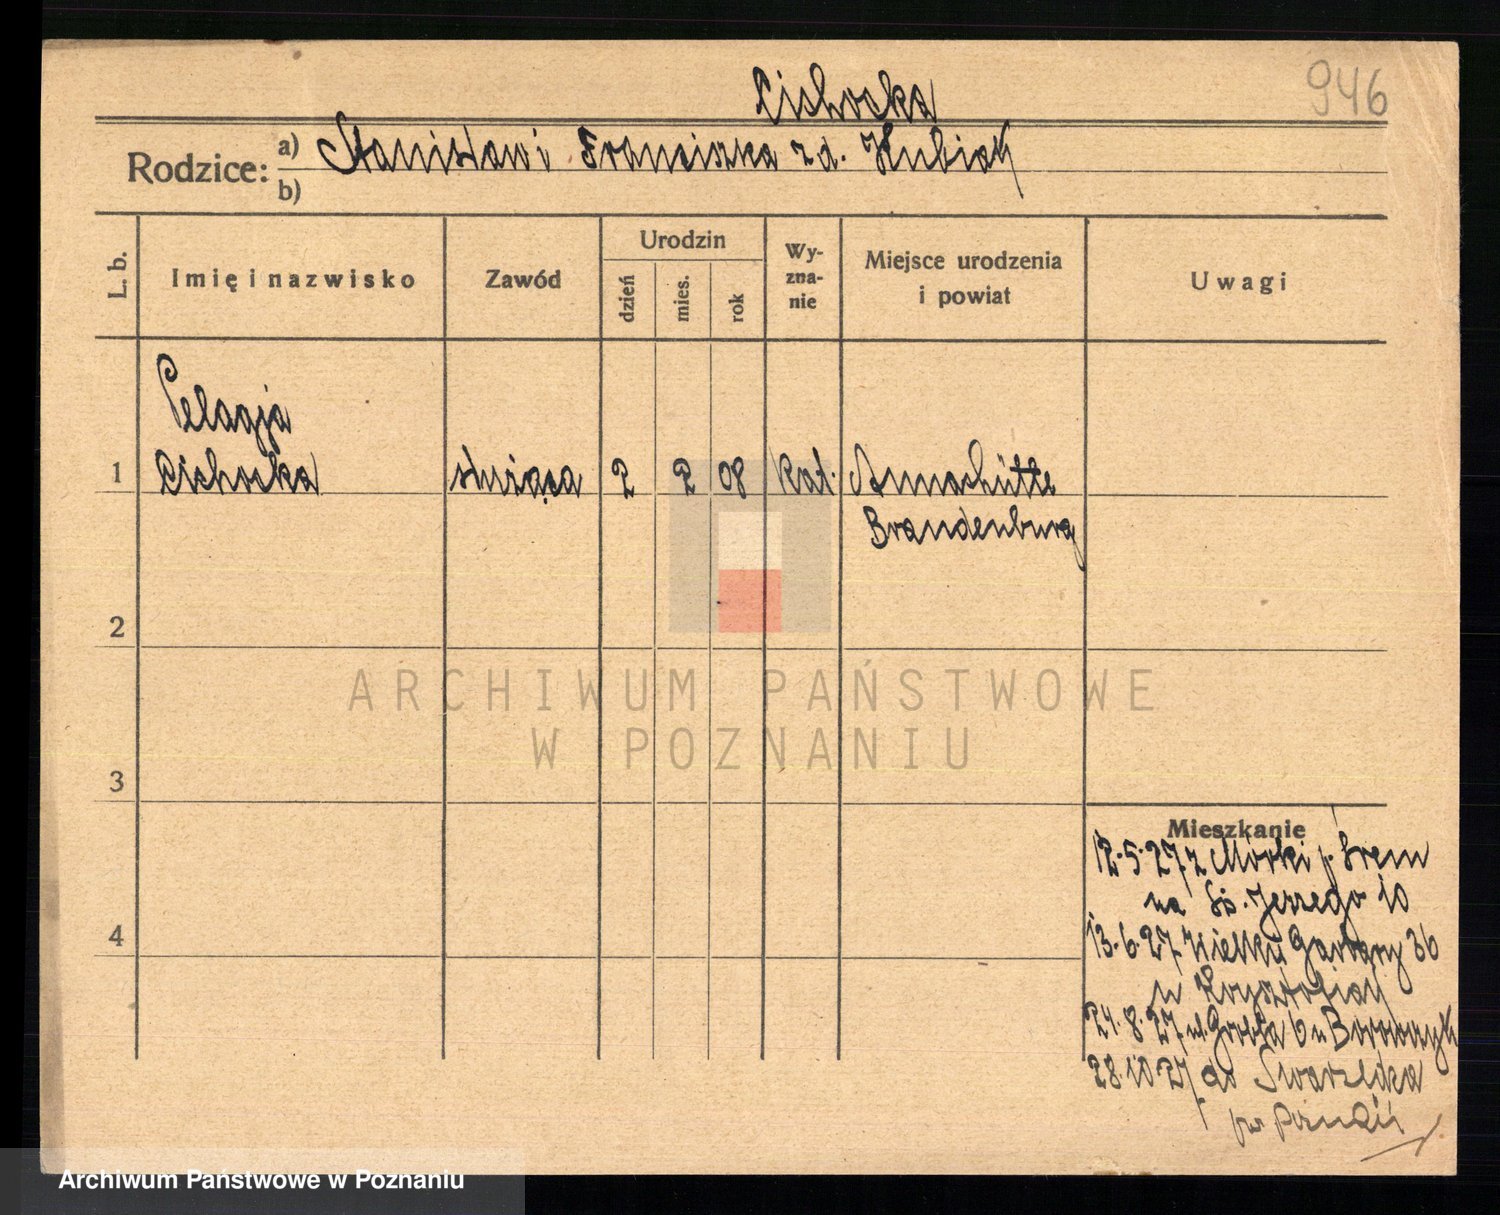 946
Cichocka
Rodzice: a) Stanisław i Franciszka zd. Kubiak
b)
L. b. Imię i nazwisko Zawód Urodzin dzień mies. rok Wy-zna-nie Miejsce urodzenia i powiat Uwagi
Pelagja
1 Cichocka służąca 2 2 08 kat. Annashütte
Brandenburg
2
ARCHIWUM PAŃSTWOWE
W POZNANIU
3
Mieszkanie
12.5.27 z Mórki p. Śrem
na Św. Jerzego 10
4
13.6.27 Wielkie Garbary 36
u
24.8.27 ul. Grobla 6 u Borowczyk
28.10.27 do Swarzędza
pow. Poznań
Archiwum Państwowe w Poznaniu